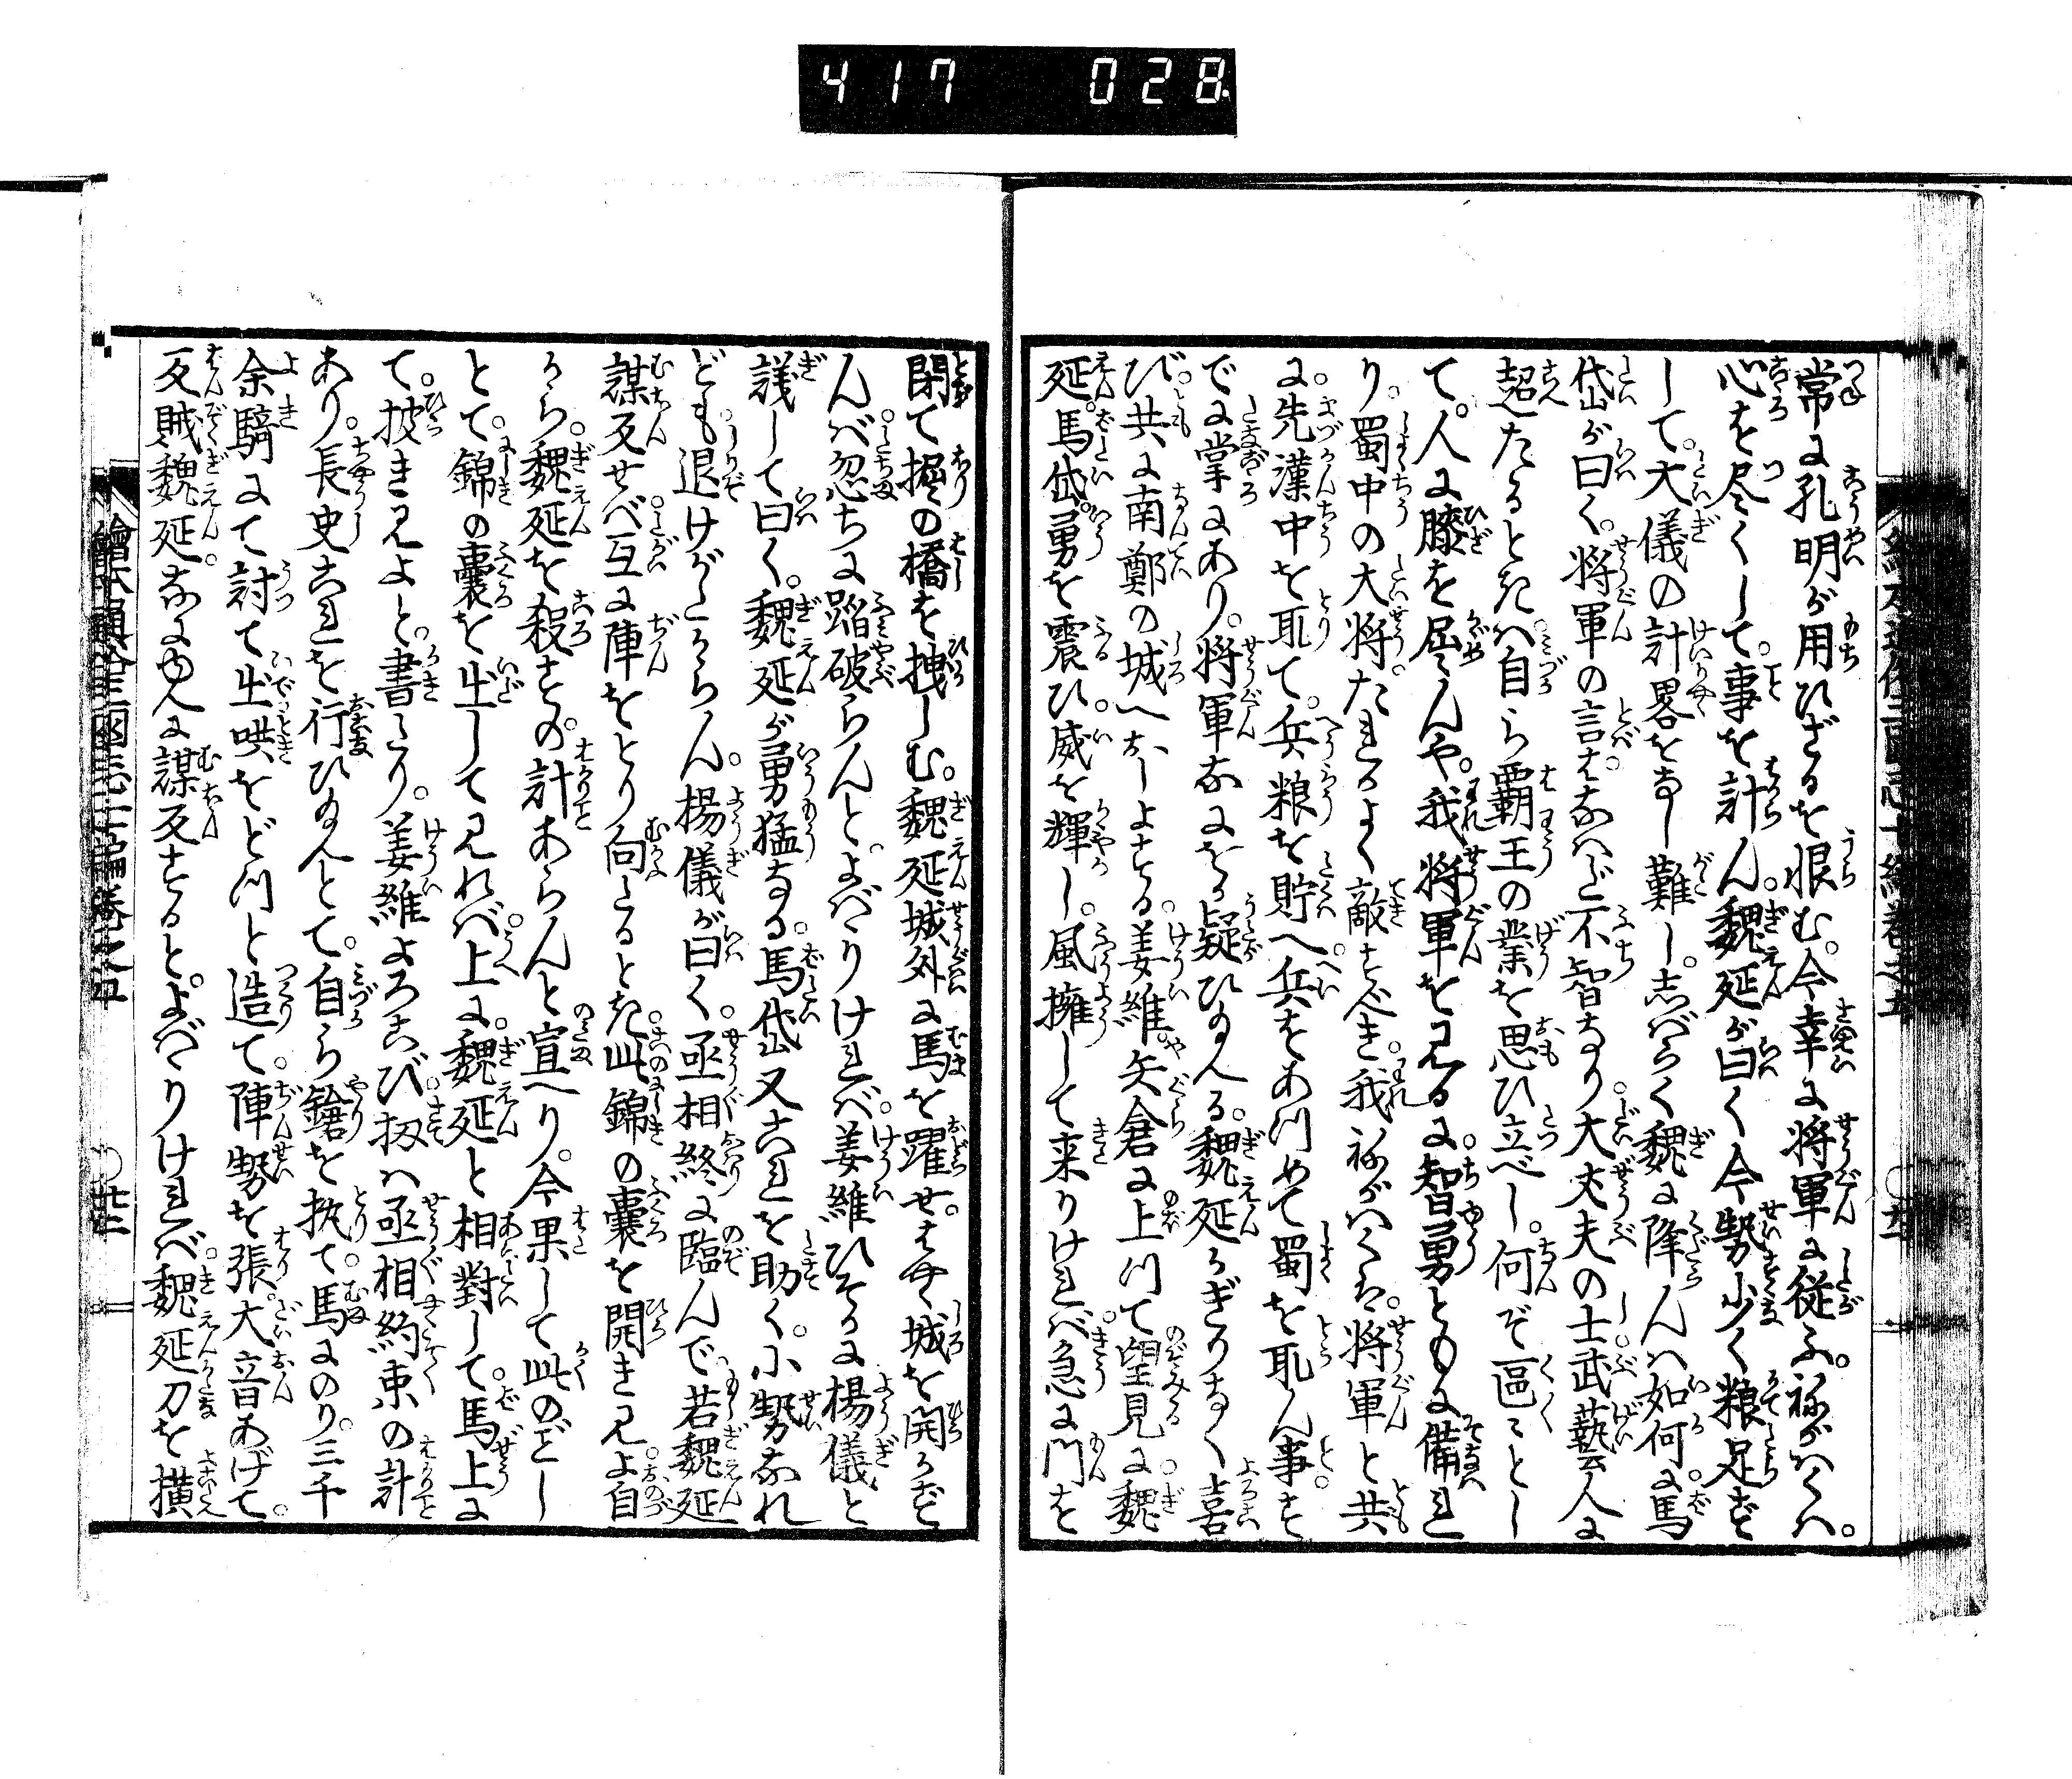 417 028
常に孔明が用ひざるを恨む。今幸に将軍に従ふ。祢がハくハ。
心を尽くして。事を計ん。魏延が曰く今勢少く粮足ず
して。大儀の計畧をなし難し。志ばらく魏に降んハ如何に。馬
岱が曰く。将軍の言さなハだ不智なり。大丈夫の士武藝人に
超たるときハ。自ら覇王の業を思ひ立べし。何ぞ區〻とし
て。人に膝を屈んや。我将軍を見るに。智勇ともに備れ
り。蜀中の大将。たれかよく敵すべき。我祢がハくハ。将軍と共
に。先漢中を取て。兵粮を貯へ。兵をあつめて蜀を取ん事。す
でに掌にあり。将軍なにをる疑ひ給ハる。魏延かぎりなく喜
び。共に南鄭の城へおしよする。姜維。矢倉に上つて望見に。魏
延。馬岱。勇を震ひ。威を輝し。風擁して来りけれバ。急に門を
閉て堀の橋を拽しむ。魏延城外に馬を躍せ。はや城を開かず
んバ忽ちに踏破らんと。よバゝりけれバ。姜維ひそかに楊儀と
議して曰く。魏延が勇猛なる。馬岱又これを助く。小勢なれ
ども。退けがたからん。楊儀が曰く。丞相終に臨んで。若魏延
謀反せバ。互に陣をとり向たるとき。此錦の嚢を開き見よ。自
から。魏延を殺すの。計あらんと宣へり。今果して此のごとし
とて。錦の嚢を出して見れバ。上に。魏延と相對して。馬上に
て。披き見よと。書たり。姜維よろこび。扨ハ丞相約束の計
あり。長史これを行ひ給へとて。自ら鎗を执て。馬にのり。三千
余騎にて討て出哄をどつと造て。陣勢を張。大音あげて。
反賊魏延。なにゆへに謀反するとよバゝりけれバ。魏延刀を横
繪本通俗三國志七編巻之五 〇廿三